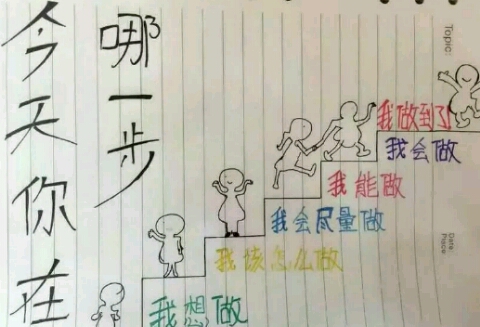 今天你在
哪一步
我做到了
我会做
我能做
我会尽量做
我该怎么做
我想做
Topic:
Date
Place